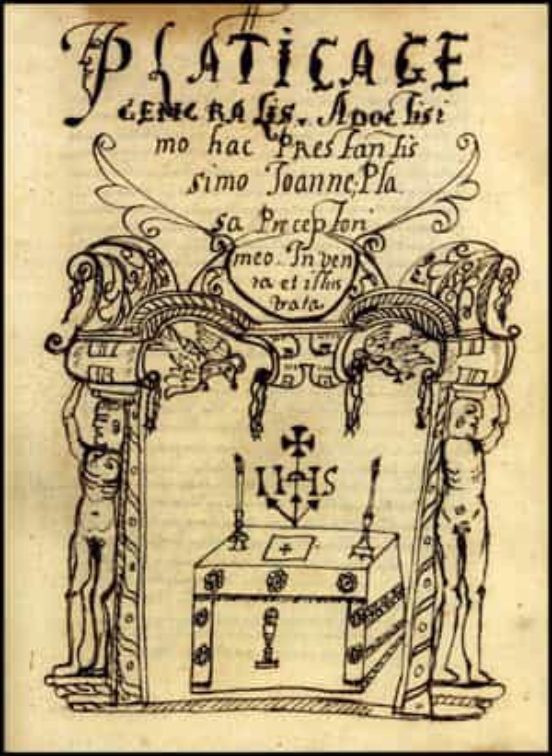 PLATICAGE
GENERALIS. A Doctisi
mo hac Prestantis
simo Joanne, Pla
sa Preceptori
meo. Inven
ta et illus
trata
IHS